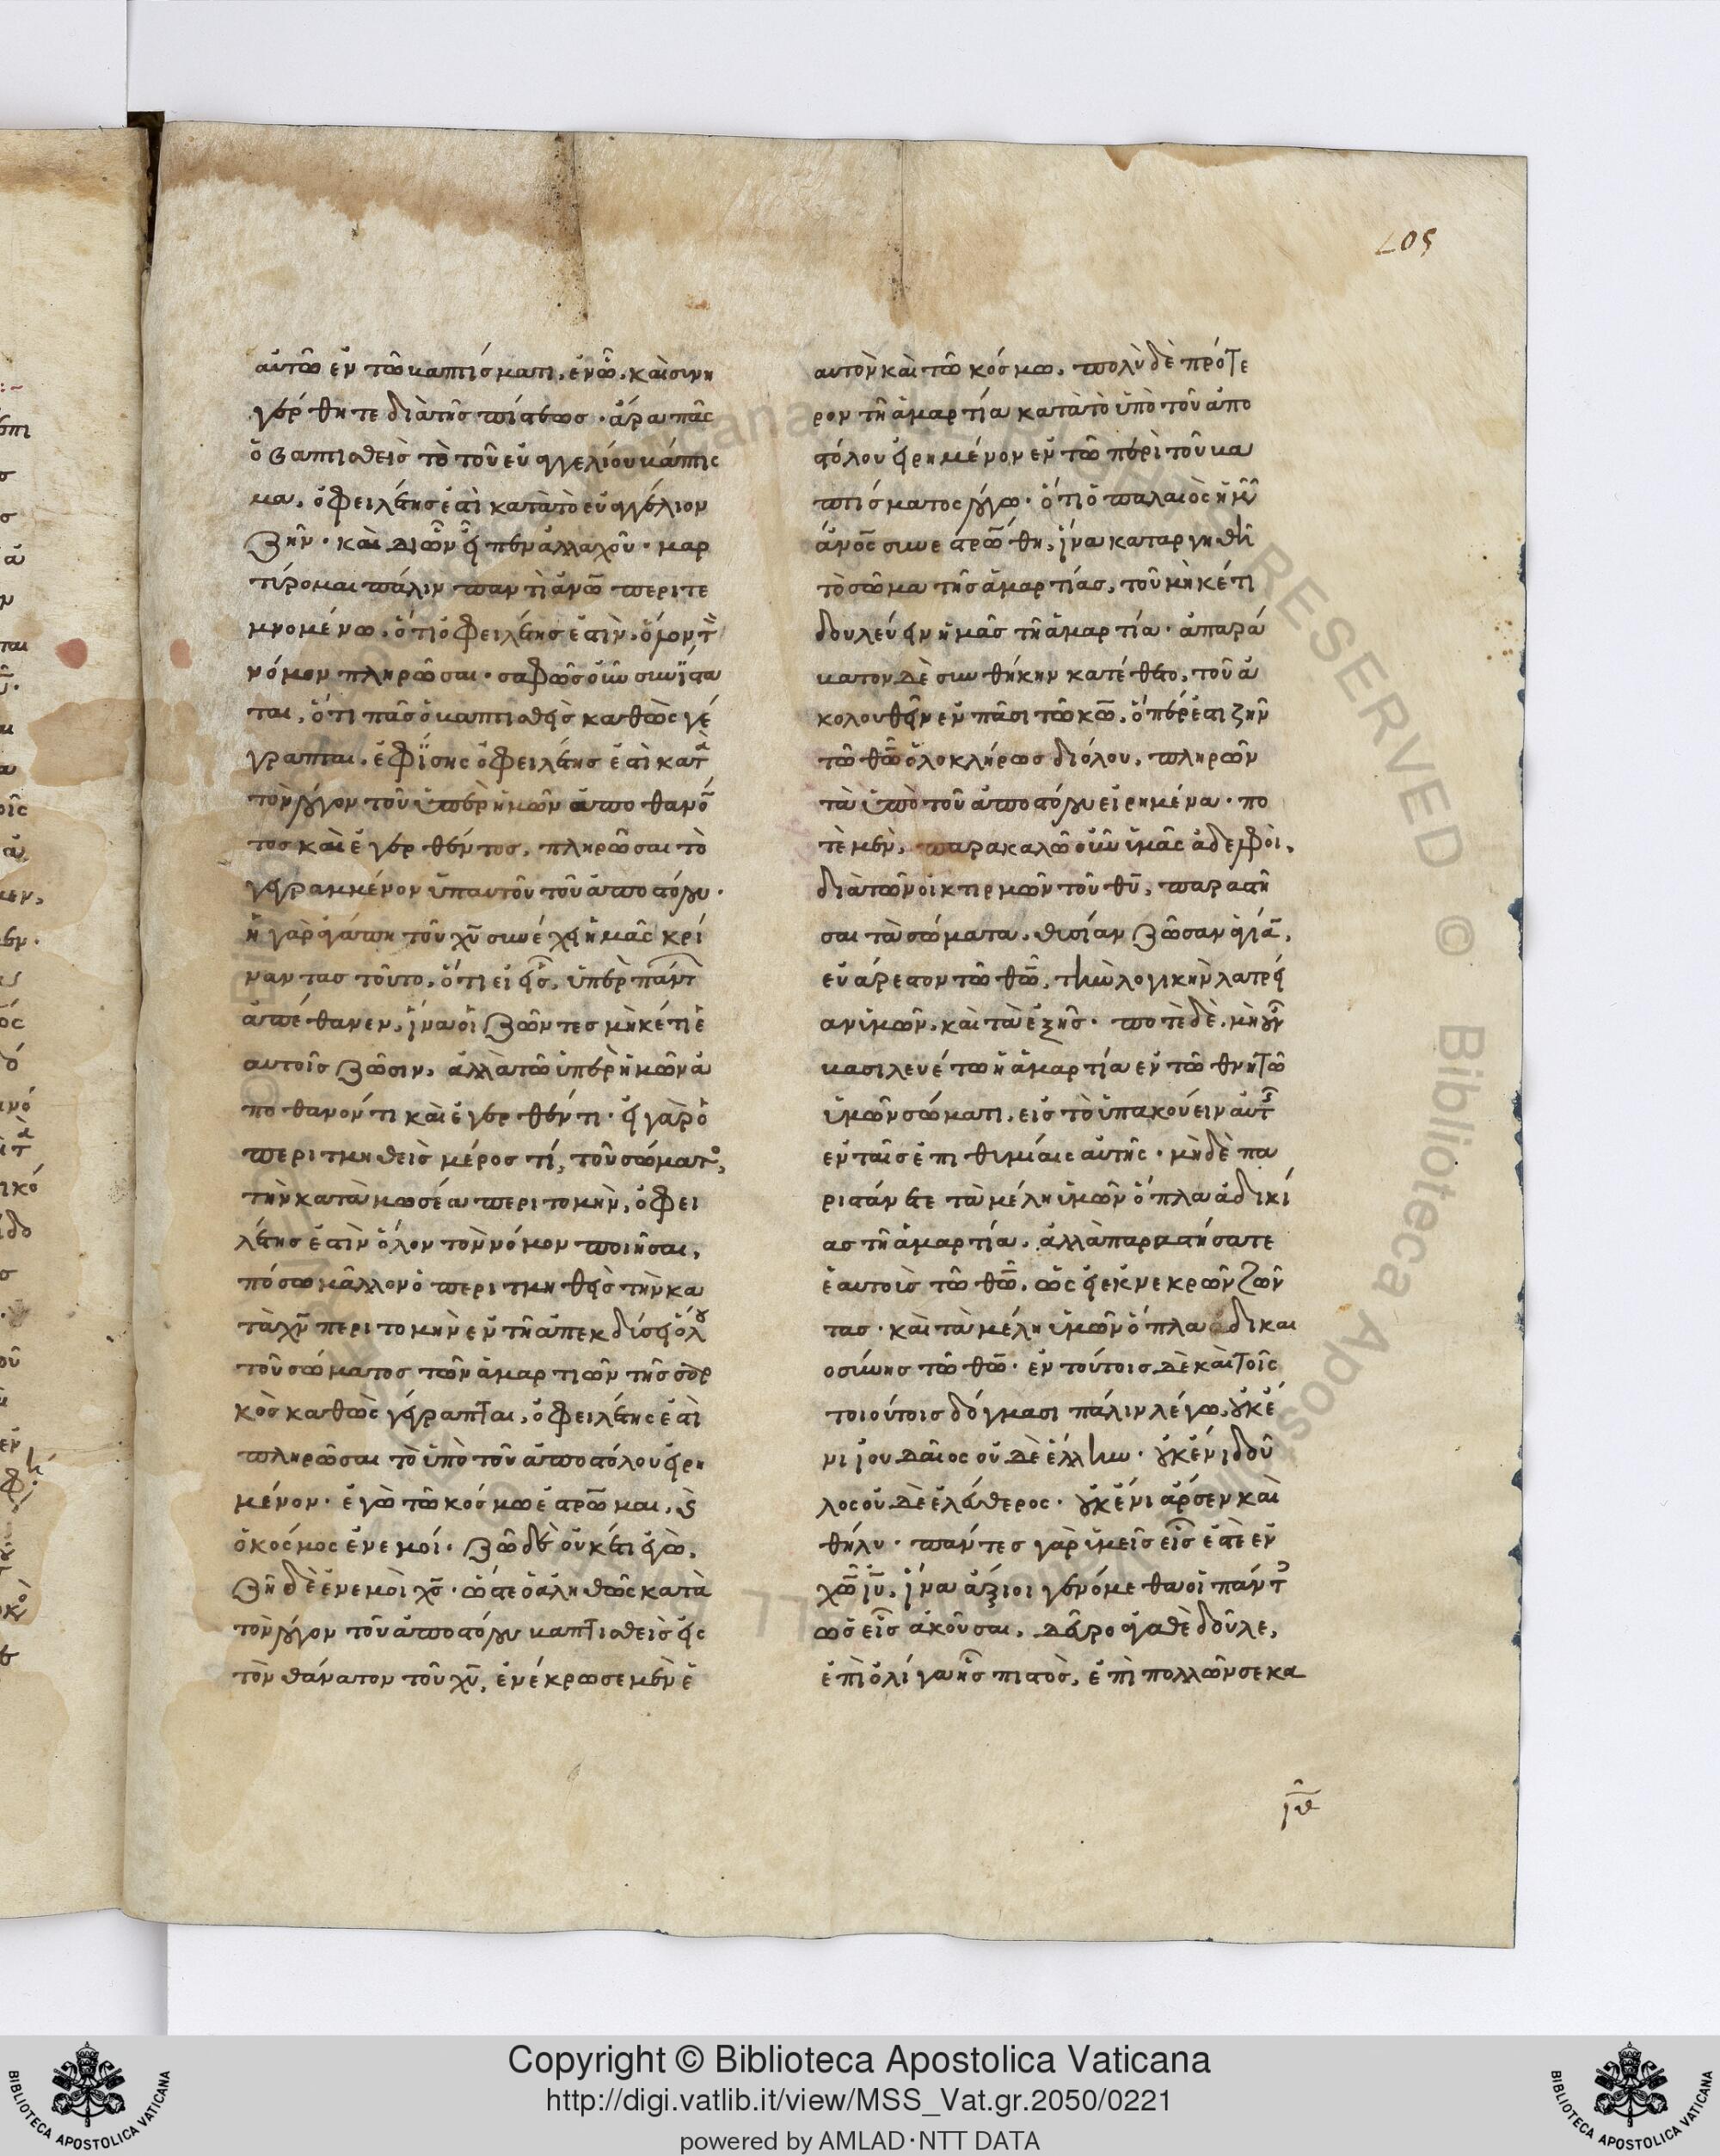 205
αὐτῶ ἐν τῶ βαπτίσματι, ἐν ὧ, καὶ συνη
γέρθητε διὰ τῆς πίστεως· ἄρα πᾶς
ὁ βαπτισθεὶς τὸ τοῦ εὐαγγελίου βάπτισ
μα, ὀφειλέτης ἐστὶ κατὰ τὸ εὐαγγέλιον
ζῆν· καὶ δι ὧν εἶπεν ἀλλαχοῦ· μαρ
τύρομαι πάλιν παντὶ ἀνω περιτε
μνομένω, ὅτι ὀφειλέτης ἐστὶν, ὅλον τ
νόμον πληρῶσαι· σαφῶς οὖν συνίστα
ται, ὅτι πᾶς ὁ βαπτισθεὶς καθὼς γέ
γραπται, ἐφίσης ὀφειλέτης ἐστὶ κατὰ
τὸν λόγον τοῦ ὑπὲρ ἡμῶν ἀποθανό
τος καὶ ἐγερθέντος, πληρῶσαι τὸ
γεγραμμένον ὑπ αυτοῦ τοῦ ἀποστόλου·
ἡ γὰρ ἀγάπη τοῦ χυ συνέχει ἡμᾶς κρί
ναντας τοῦτο, ὅτι εἰ εἷς, ὑπὲρ πάντ
ἀπέθανεν, ἵνα οἱ ζῶντες μὴκέτι ἑ
αυτοῖς ζῶσιν, ἀλλὰ τῶ ὑπὲρ ἡμῶν ἀ
ποθανόντι καὶ ἐγερθέντι· εἰ γὰρ ὁ
περιτμηθεὶς μέρος τί, τοῦ σώματο,
τὴν κατὰ μωσέα περιτομὴν, ὀφει
λέτης ἐστὶν ὅλον τὸν νόμον ποιῆσαι,
πόσω μᾶλλον ὁ περιτμηθεὶς τὴν κα
τὰ χν περιτομὴν ἐν τῆ ἀπεκδύσει ὅλου
τοῦ σώματος τῶν ἁμαρτιῶν τῆς σαρ
κὸς καθὼς γέγραπται, ὀφειλέτης ἐστὶ
πληρῶσαι τὸ ὑπὸ τοῦ ἀποστόλου εἰρη
μένον· ἐγὼ τῶ κόσμω ἐστρωμαι, καὶ
ὁ κόσμος ἐν ἐμοί· ζῶ δὲ οὐκέτι ἐγὼ,
ζῆ δὲ ἐν ἐμοὶ χς· ὥστε ὁ ἀληθῶς κατὰ
τὸν λόγον τοῦ ἀποστόλου βαπτισθεὶς εἰς
τὸν θάνατον τοῦ χυ, ἐνέκρωσε μὲν ἑ
αυτὸν καὶ τῶ κόσμω, πολὺ δὲ πρότε
ρον τῆ ἁμαρτία κατὰ τὸ ὑπὸ τοῦ ἀπο
στόλου εἰρημένον ἐν τῶ περὶ τοῦ βα
πτίσματος λόγω· ὅτι ὁ παλαιὸς ἡμῶν
άνος συνεστρώθη, ἵνα καταργηθῆ
τὸ σῶμα τῆς ἁμαρτίας, τοῦ μὴκέτι
δουλεύειν ἡμᾶς τῆ ἁμαρτία· ἀπαρά
βατον δὲ συνθήκην κατέθετο, τοῦ ἀ
κολουθεῖν ἐν πᾶσι τῶ κω, ὅπερ ἐστι ζῆν
τῶ θω ὁλοκλήρως διόλου, πληρῶν
τὰ ὑπὸ τοῦ ἀποστόλου εἰρημένα· πο
τὲ μὲν, παρακαλῶ οὖν ὑμᾶς ἀδελφοὶ,
διὰ τῶν οἰκτιρμῶν τοῦ θυ, παραστῆ
σαι τὰ σώματα, θυσίαν ζῶσαν ἁγία,
εὐάρεστον τῶ θω, τὴν λογικὴν λατρεί
αν ὑμῶν, καὶ τὰ ἑξῆς· ποτὲ δὲ, μὴ οὖν
βασιλευέτω ἡ ἁμαρτία ἐν τῶ θνητῶ
ὑμῶν σώματι, εἰς τὸ ὑπακούειν αὐτ
ἐν ταῖς ἐπιθυμίαις αὐτῆς· μὴδὲ πα
ριστάνετε τὰ μέλη ὑμῶν ὅπλα ἀδικί
ας τῆ ἁμαρτία, ἀλλὰ παραστήσατε
ἑαυτοὺς τῶ θω, ὡς εἰ ἐκ νεκρῶν ζῶν
τας· καὶ τὰ μέλη ὑμῶν ὅπλα δικαι
οσύνης τῶ θω· ἐν τούτοις δὲ καὶ τοῖς
τοιούτοις δόγμασι πάλιν λέγω, οὐκ ἔ
νι ἰουδαῖος οὐδὲ ἕλλην· οὐκ ἔνι δοῦ
λος οὐδὲ ἐλεύθερος· οὐκ ἔνι ἄρσεν καὶ
θῆλυ· πάντες γὰρ ὑμεῖς εἷς ἐστὲ ἐν
χω ιυ, ἵνα ἄξιοι γενόμεθα οἱ πάντ
ὡς εἷς ἀκοῦσαι, δεῦρο ἀγαθὲ δοῦλε,
ἐπὶ ὀλίγα ἦς πιστὸς, ἐπὶ πολλῶν σε κα
Copyright © Biblioteca Apostolica Vaticana
http://digi.vatlib.it/view/MSS_Vat.gr.2050/0221
powered by AMLAD·NTT DATA